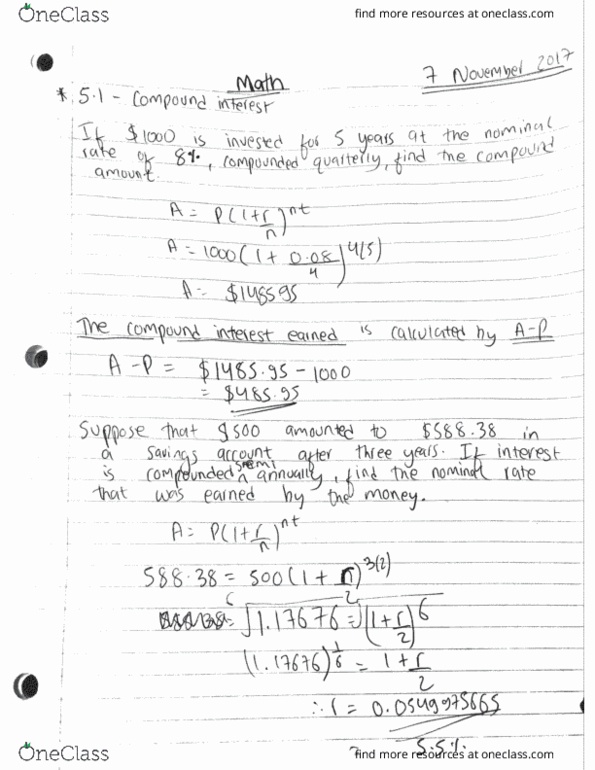 OneClass
find more resources at oneclass.com
7 November 2017
Math
* 5.1 - Compound interest
If $1000 is invested for 5 years at the nominal
rate of 8%, compounded quarterly, find the compound
amount.
A = P(1+r/n)^nt
A = 1000(1 + 0.08/4)^4(5)
A = $1485.95
The compound interest earned is calculated by A-P
A - P = $1485.95 - 1000
= $485.95
Suppose that $500 amounted to $588.38 in
a savings account after three years. If interest
is compounded semi annually, find the nominal rate
that was earned by the money.
A = P(1+r/n)^nt
588.38 = 500(1 + r/2)^3(2)
6√1.17676 = √(1+r/2)^6
(1.17676)^1/6 = 1+r/2
∴ r = 0.0549975665
5.5%
OneClass
find more resources at oneclass.com